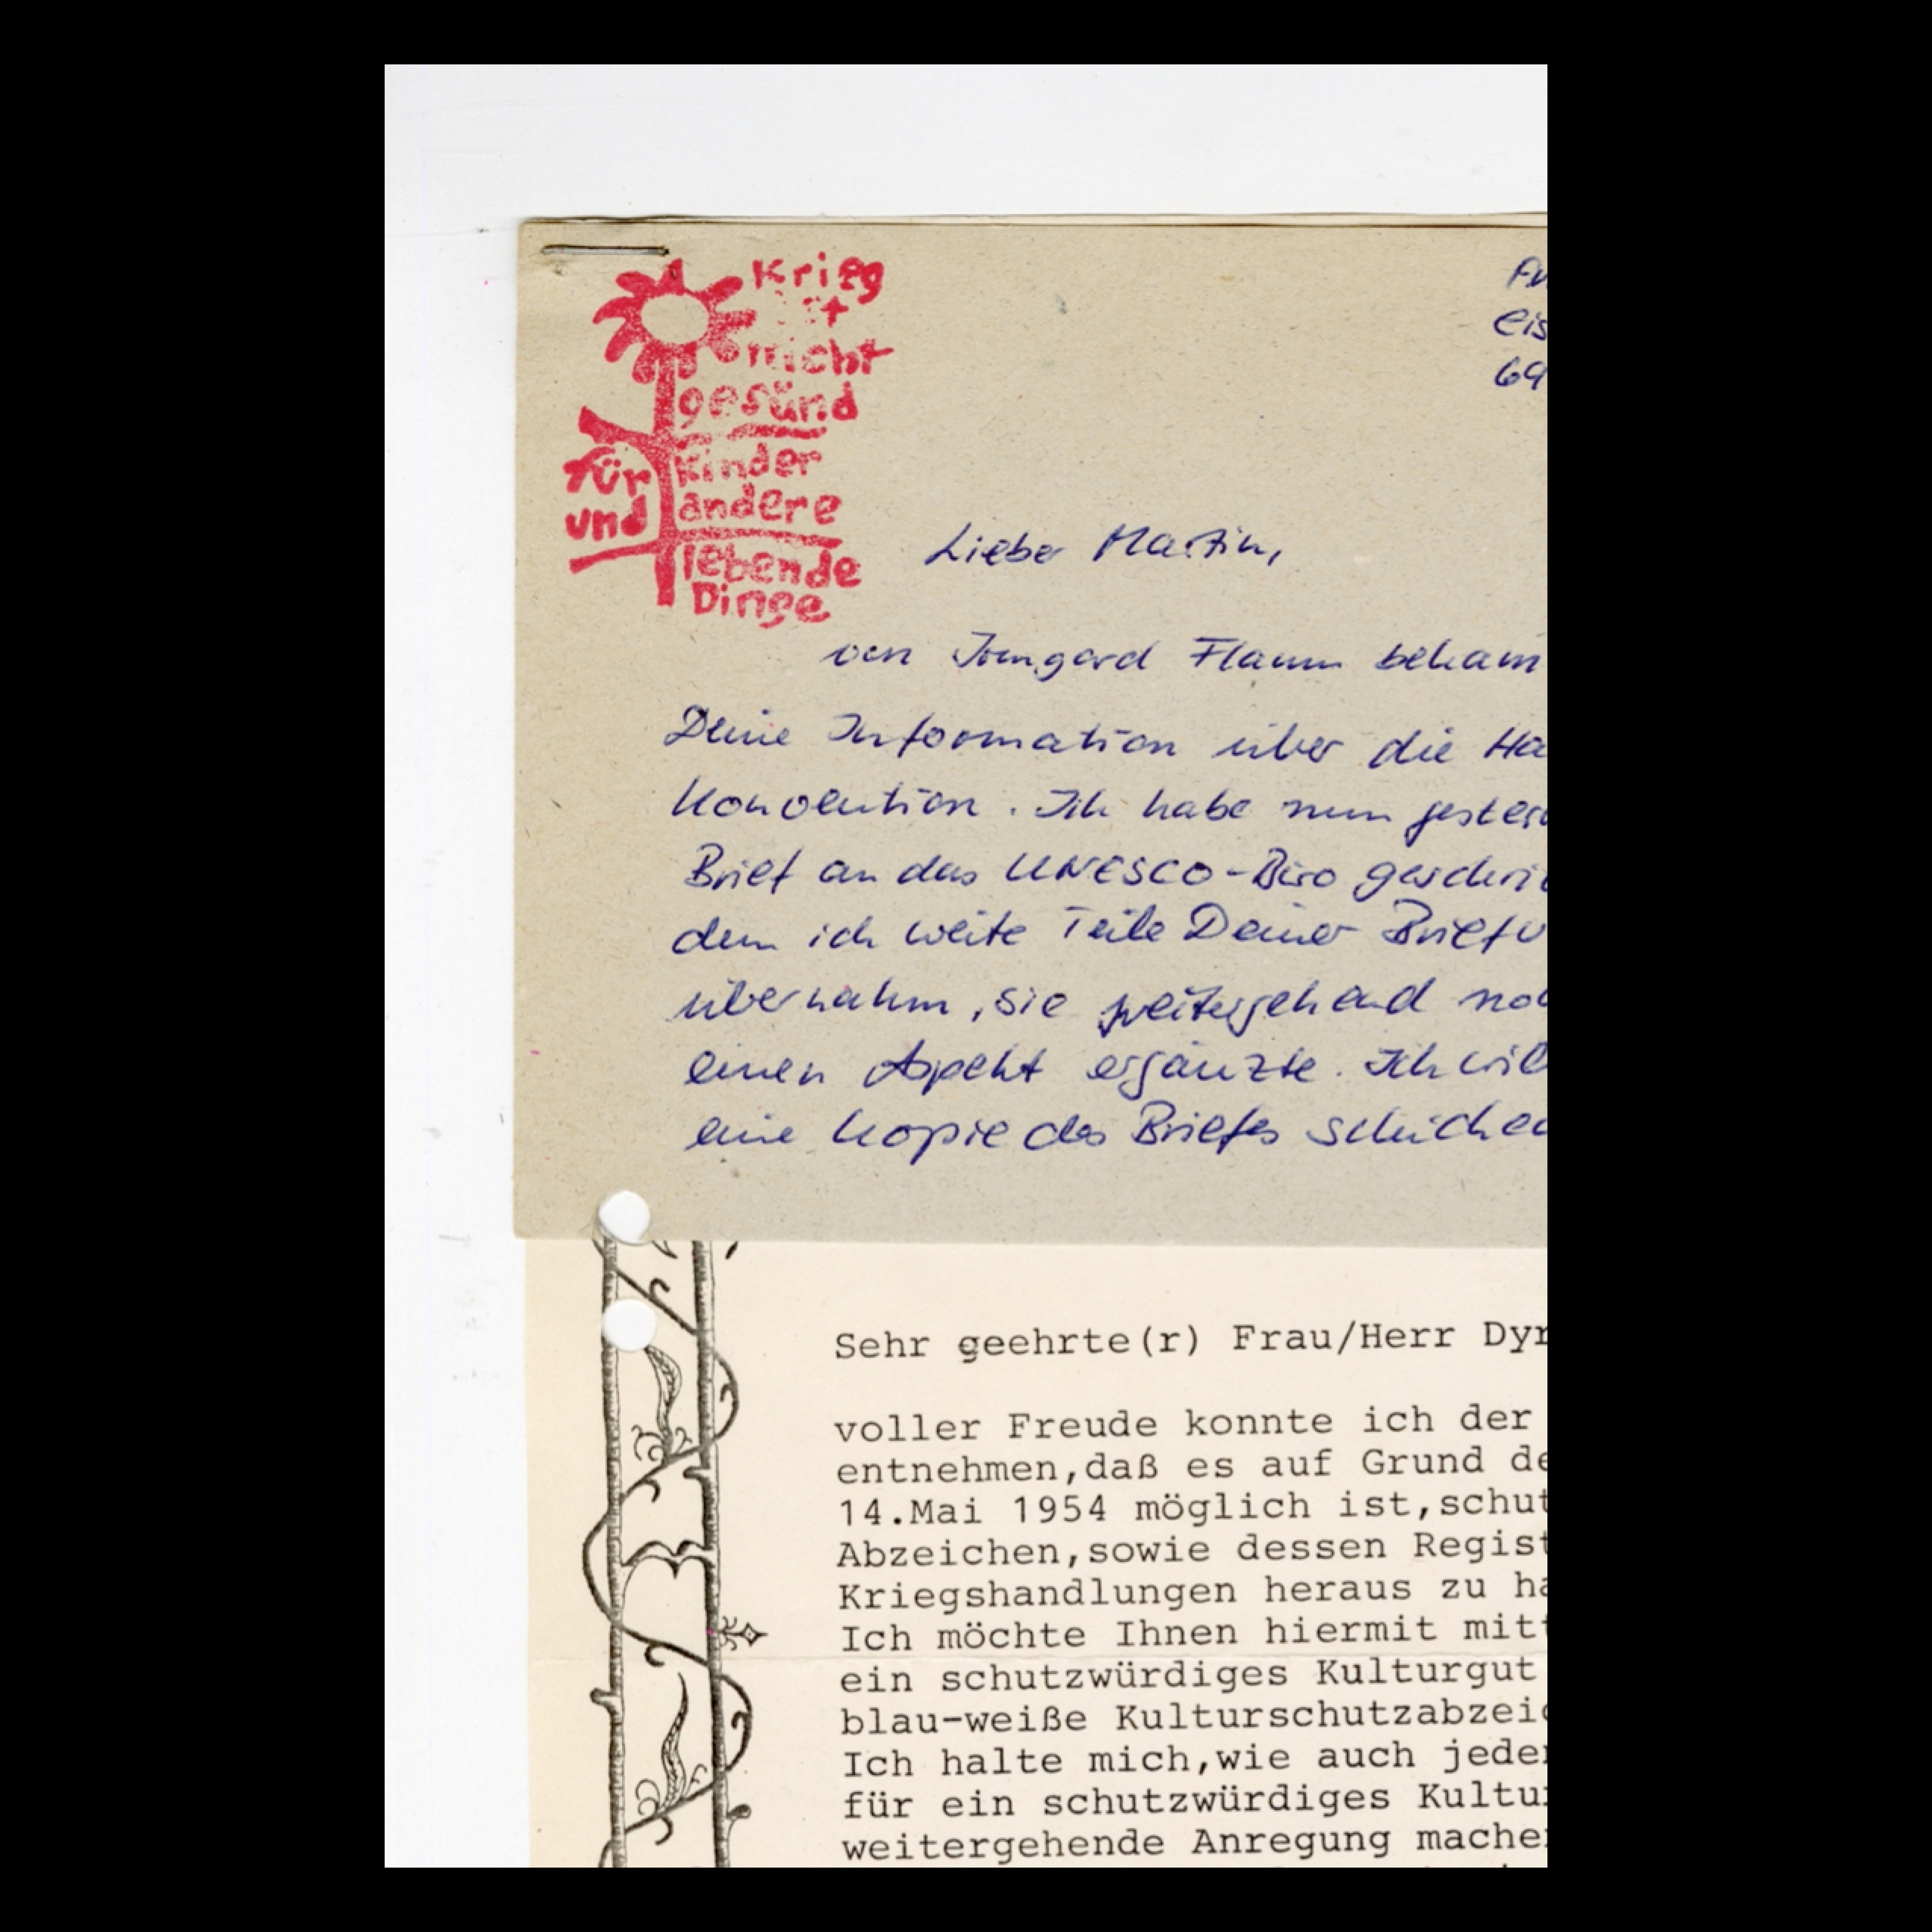 Krieg
nicht
gesund
für Kinder
und andere
lebende
Dinge
Eis
69
Lieber Martin,
von Irmgard Flamm bekam
Deine Information über die Ha
Konvention. Ich habe nun gestern
Brief an das UNESCO-Büro geschri
dem ich weite Teile Deiner Briefv
übernahm, sie weitergehend noc
einen Aspekt ergänzte. Ich wil
eine Kopie des Briefes schicken
Sehr geehrte(r) Frau/Herr Dyr
voller Freude konnte ich der
entnehmen,daß es auf Grund de
14.Mai 1954 möglich ist,schut
Abzeichen,sowie dessen Regist
Kriegshandlungen heraus zu ha
Ich möchte Ihnen hiermit mitt
ein schutzwürdiges Kulturgut
blau-weiße Kulturschutzabzeic
Ich halte mich,wie auch jeder
für ein schutzwürdiges Kultur
weitergehende Anregung machen